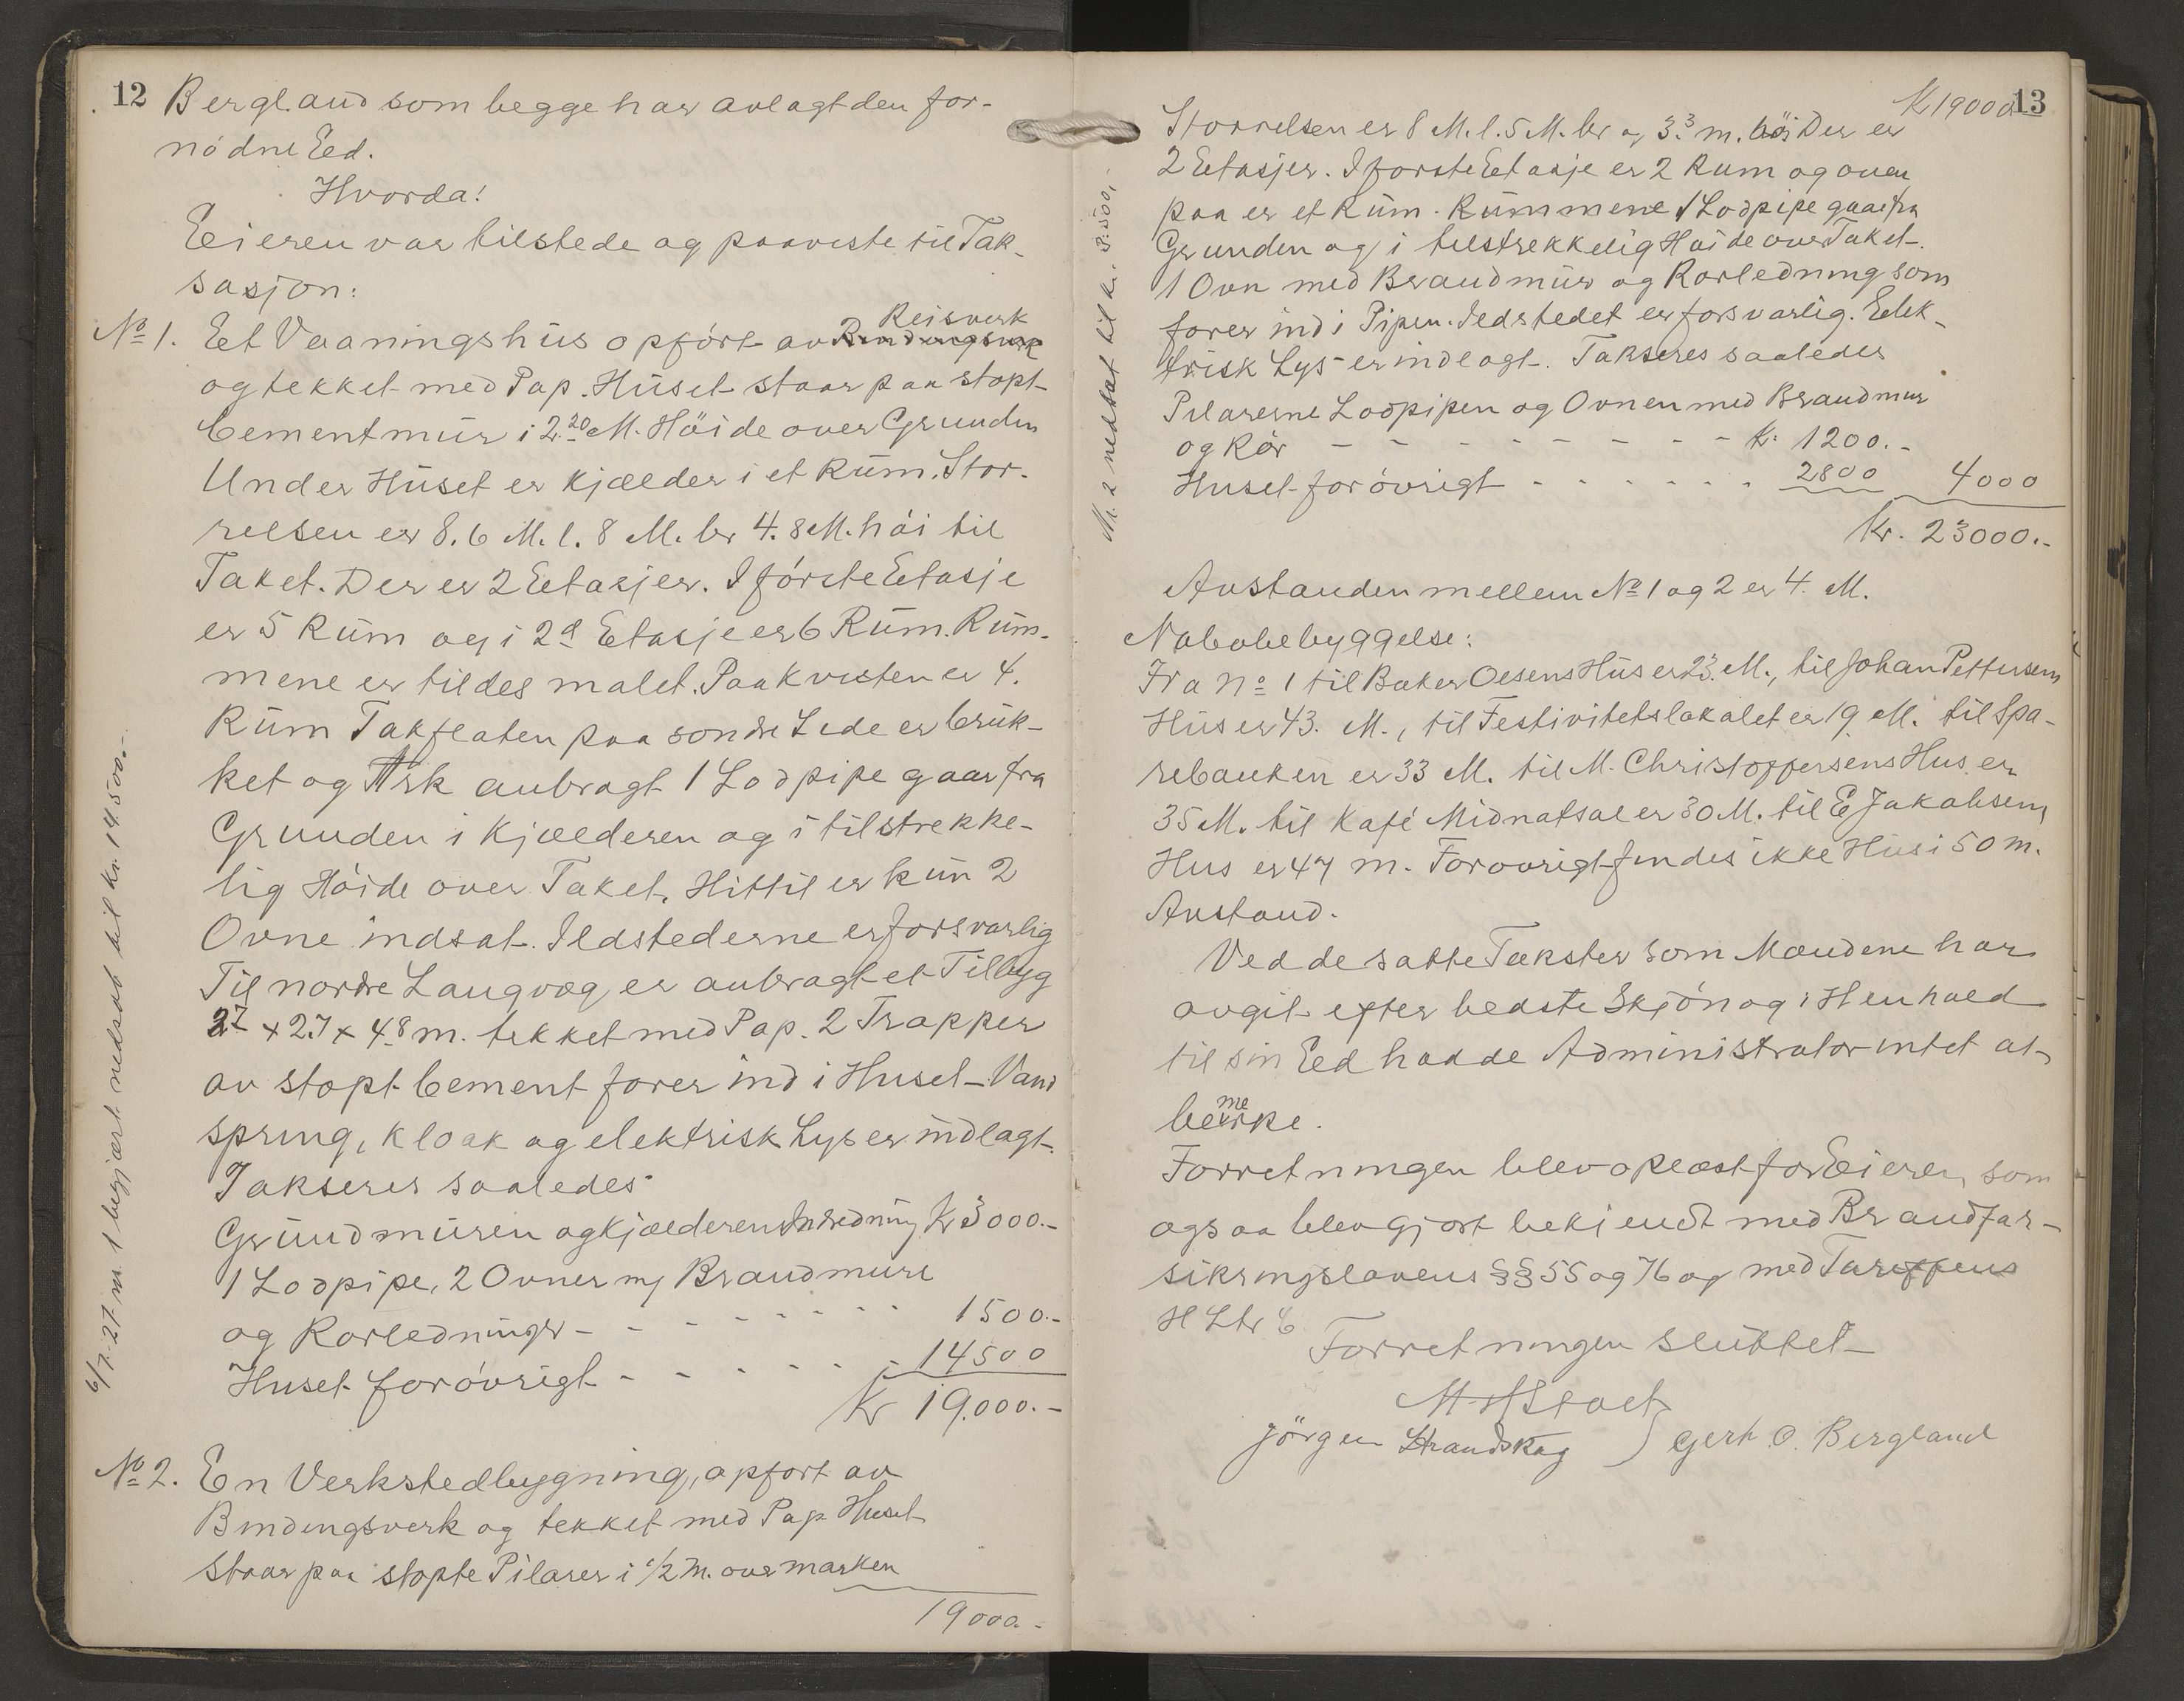 12
Bergland som begge har avlagt den for-
nödne Eed.
Hvorda!
Eeieren var tilstede og paaviste til Tak-
sasjon:
No 1. Eet Vaaningshus opfört av Bindingsverk Reisverk
og tekket med Pap. Huset staar paa stöpt
Cementmur i 2.20 M. Höide over Grunden
Under Huset er Kjælder i et Rum. Stör-
relsen er 8.6 M. l. 8 M. br 4.8 M. höi til
Taket. Der er 2 Eetasjer. I förste Eetasje
er 5 Rum og i 2d Eetasje er 6 Rum. Rum-
mene er tildes malet. Paa Kvisten er 4.
Rum Takflaten paa söndre Side er bruk-
ket og Ark anbragt 1 Lodpipe gaar fra
Grunden i Kjælderen og i tilstrekke-
lig Höide over Taket. Hittil er kun 2
Ovne indsat. Ildstederne er forsvarlig
Til nordre Langvæg er anbragt et Tilbyg
2.7 x 2.7 x 4.8 m. tekket med Pap. 2 Trapper
av stöpt Cement förer ind i Huset - Vand
spring, Kloak og elektrisk Lys er indlagt.
Takseres saaledes
Grundmuren og kjælderens Indredning Kr 3000.-
1 Lodpipe, 2 Ovner m/ Brandmure
og Rörledninger - - - - - - - 1500.-
Huset forövrigt - - - - - - 14500
Kr 19.000.-
No 2. En Verkstedbygning, opfört av
Bindingsverk og tekket med Pap Huset
staar paa stöpte Pilarer i 1/2 M. over marken
19000.-
6/7-27 nr. 1 begjært nedsat til kr. 14500.-
13
Kr 19000
Störrelsen er 8 M. l. 5 M. br og 3.3 m. höi Der er
2 Eetasjer. I förste Eetasje er 2 Rum og oven
paa er et Rum. Rummene 1 Lodpipe gaar fra
Grunden og i tilstrekkelig Höide over Taket.
1 Ovn med Brandmur og Rörledning som
förer ind i Pipen. Ildstedet er forsvarlig. Eelek-
trisk Lys er indlagt. Takseres saaledes
Pilarerne Lodpipen og Ovnen med Brandmur
og Rör - - - - - - - - - Kr 1200.-
Huset forövrigt - - - - - - 2800 4000
Kr. 23000.-
Avstanden mellem No 1 og 2 er 4. M.
Nabobebyggelse:
Fra No 1 til Baker Olsens Hus er 23. M., til Johan Pettersens
Hus er 43. M., til Festivitetslokalet er 19. M. til Spa-
rebanken er 33 M. til M. Christoffersens Hus er
35 M. til Kafé Midnatsol er 30 M. til E Jakobsens
Hus er 47 m. Forövrigt findes ikke Hus i 50 m.
Avstand.
Ved de satte Takster som Mændene har
avgit efter bedste Skjön og i Henhold
til sin Eed hadde Administrator intet at
bemerke.
Forretningen blev oplæst for Eieren, som
ogsaa blev gjort bekjendt med Brandfor-
sikringslovens §§ 55 og 76 og med Tariffens
H Ltr C
Forretningen sluttet
Jörgen Strandskog } Gerh. O. Bergland
Nr. 2 nedsat til kr. 2.800,-